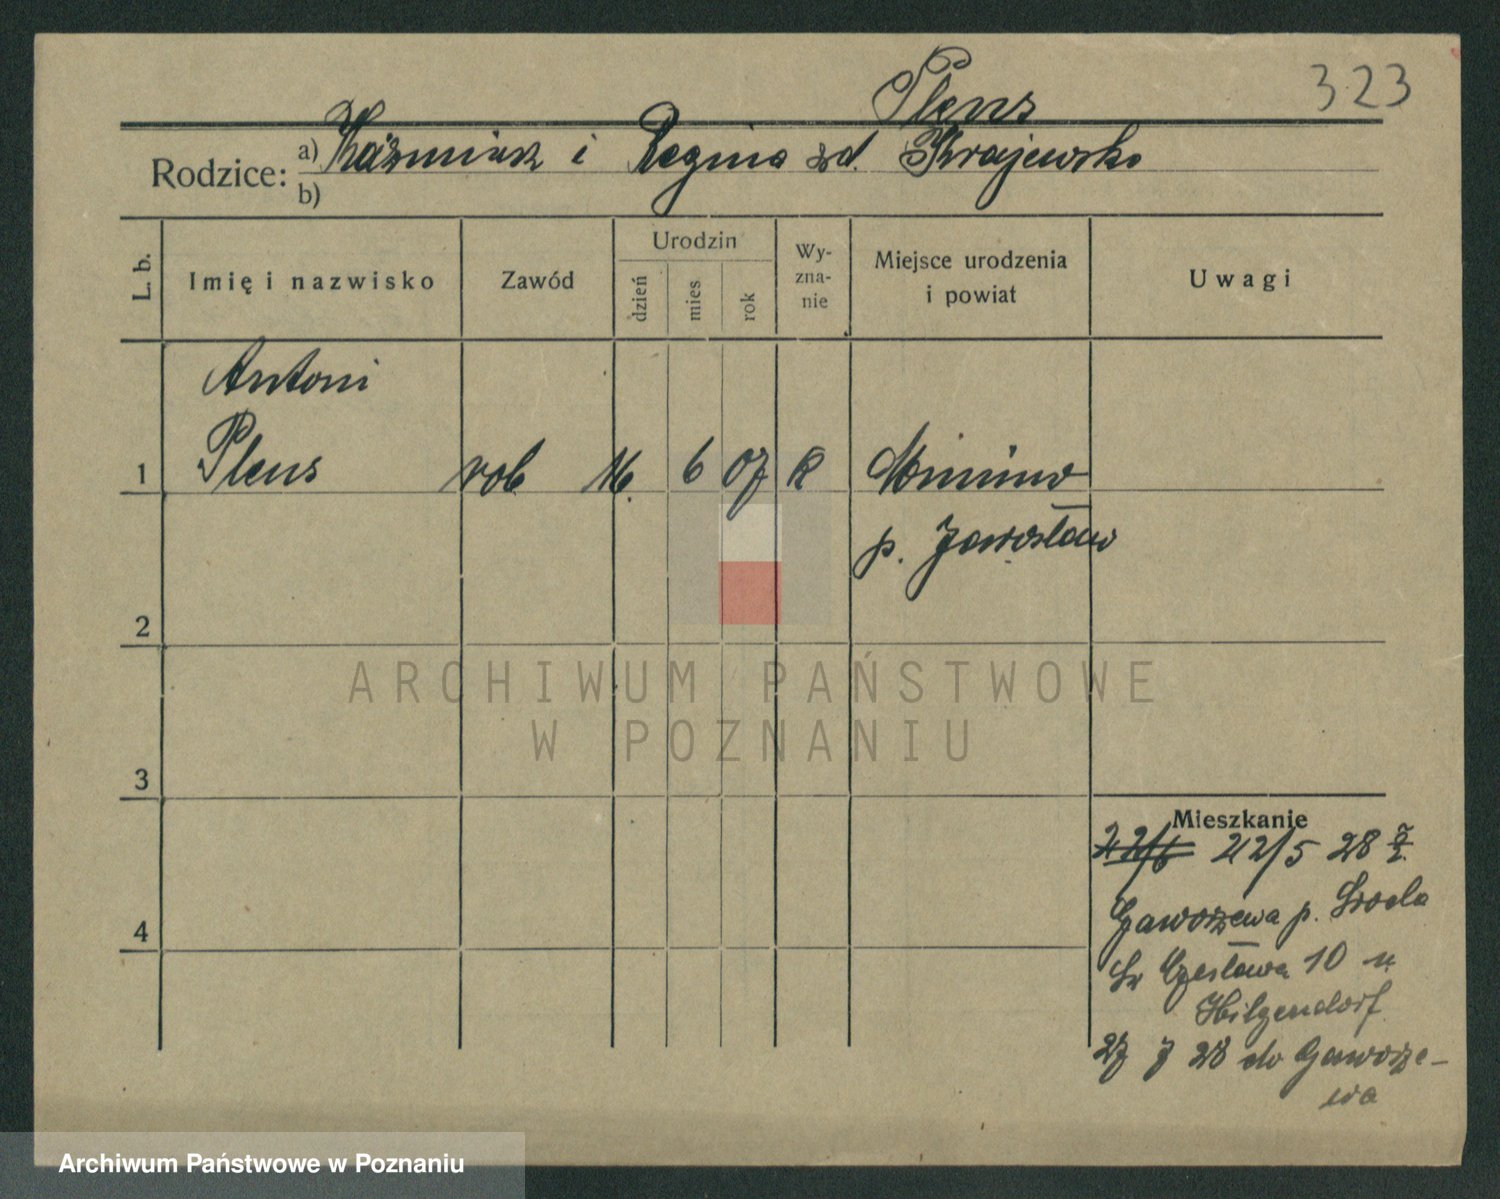 Plens
323
Rodzice: a) Kaźmierz i Regina zd. Krajewska
b)
L. b. Imię i nazwisko Zawód Urodzin dzień mies rok Wy-zna-nie Miejsce urodzenia i powiat Uwagi
Antoni
1 Plens rob 16 6 07 k
p. Jarosław
2
3
4
Mieszkanie
22/6 22/5 28 z
Gaworzewa p. Środa
Św Czesława 10 u
Hilgendorf
27 7 28 do Gaworze-
wa
ARCHIWUM PAŃSTWOWE
W POZNANIU
Archiwum Państwowe w Poznaniu